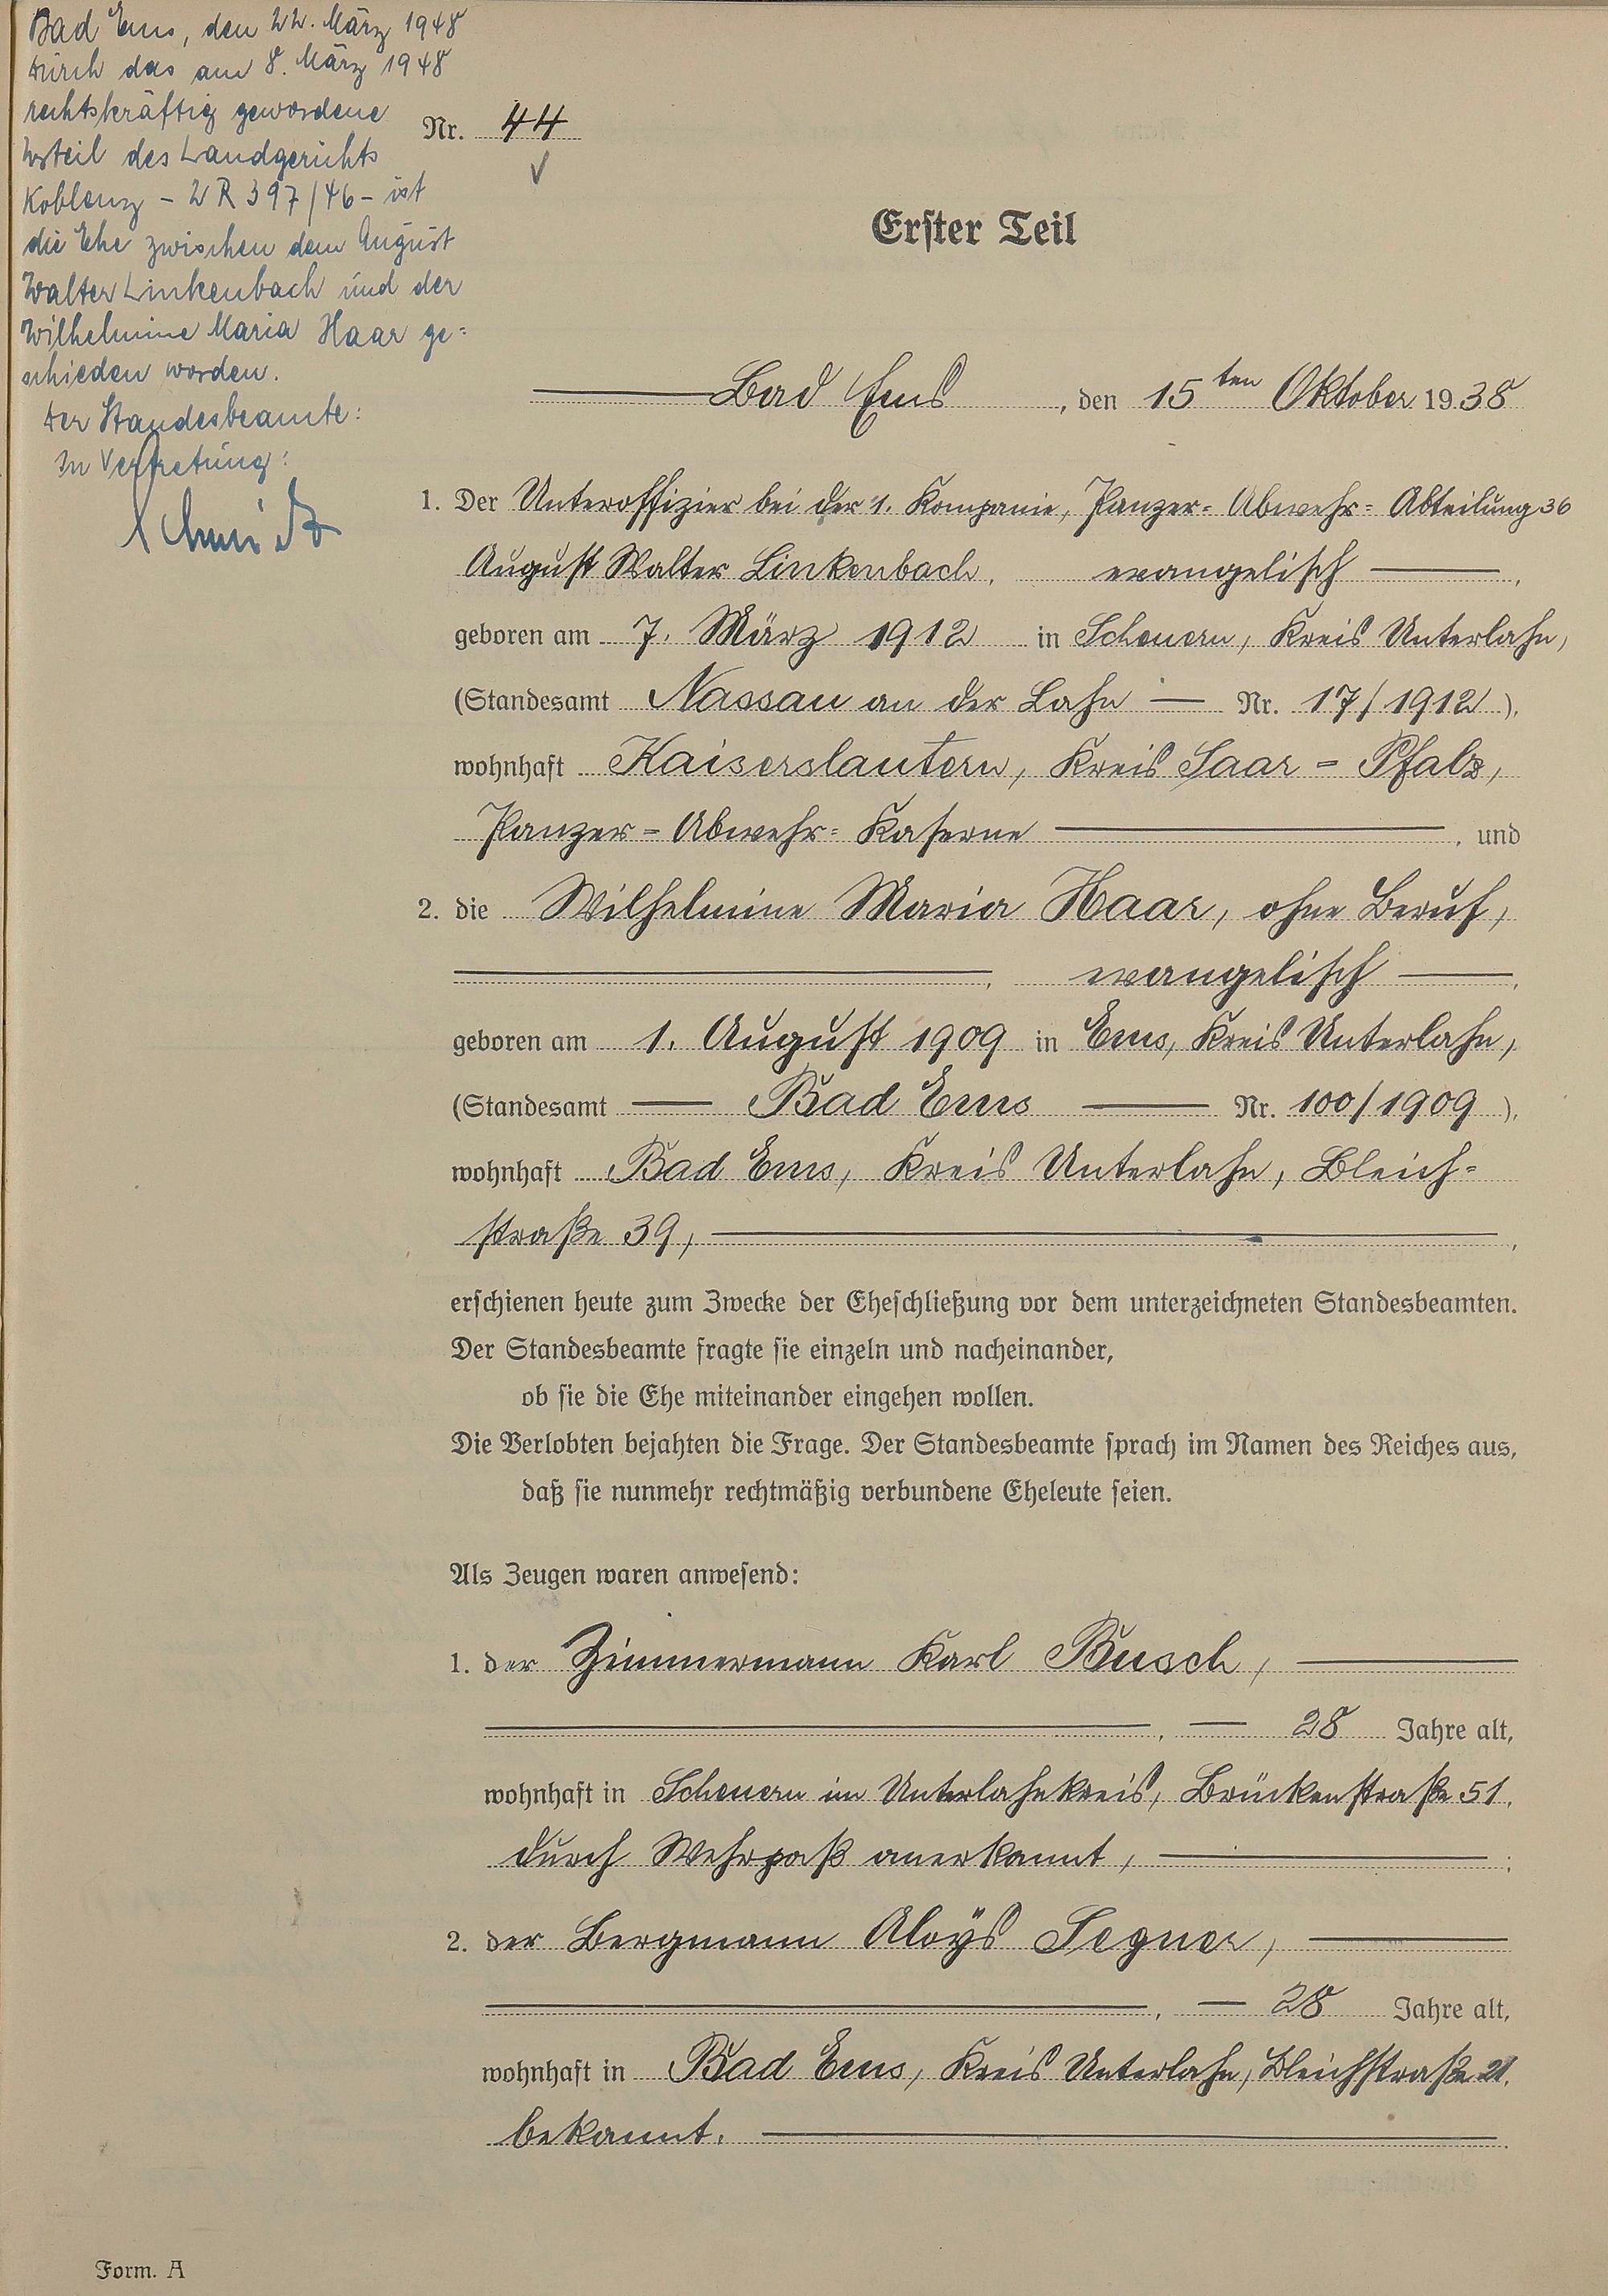 Bad Ems, den 22. März 1948
Durch das am 8. März 1948
rechtskräftig gewordene
Urteil des Landgerichts
Koblenz - 2 R 397/46 - ist
die Ehe zwischen dem August
Walter Linkenbach und der
Wilhelmine Maria Haar ge=
schieden worden.
Der Standesbeamte:
In Vertretung:
Schmidt
Nr. 44
Erster Teil
Bad Ems, den 15ten Oktober 1938
1. Der Unteroffizier bei der 1. Kompanie, Panzer= Abwehr= Abteilung 36
August Walter Linkenbach, evangelisch,
geboren am 7. März 1912 in Scheuern, Kreis Unterlahn,
(Standesamt Nassau an der Lahn — Nr. 17/1912),
wohnhaft Kaiserslautern, Kreis Saar - Pfalz,
Panzer=Abwehr=Kaserne, und
2. die Wilhelmine Maria Haar, ohne Beruf,
evangelisch,
geboren am 1. August 1909 in Ems, Kreis Unterlahn,
(Standesamt — Bad Ems — Nr. 100/1909),
wohnhaft Bad Ems, Kreis Unterlahn, Bleich=
straße 39,
erschienen heute zum Zwecke der Eheschließung vor dem unterzeichneten Standesbeamten.
Der Standesbeamte fragte sie einzeln und nacheinander,
ob sie die Ehe miteinander eingehen wollen.
Die Verlobten bejahten die Frage. Der Standesbeamte sprach im Namen des Reiches aus,
daß sie nunmehr rechtmäßig verbundene Eheleute seien.
Als Zeugen waren anwesend:
1. der Zimmermann Karl Busch,
28 Jahre alt,
wohnhaft in Scheuern im Unterlahnkreis, Brückenstraße 51.
durch Wehrpaß anerkannt,;
2. der Bergmann Aloÿs Segner,
28 Jahre alt,
wohnhaft in Bad Ems, Kreis Unterlahn, Bleichstraße 21.
bekannt.
Form. A